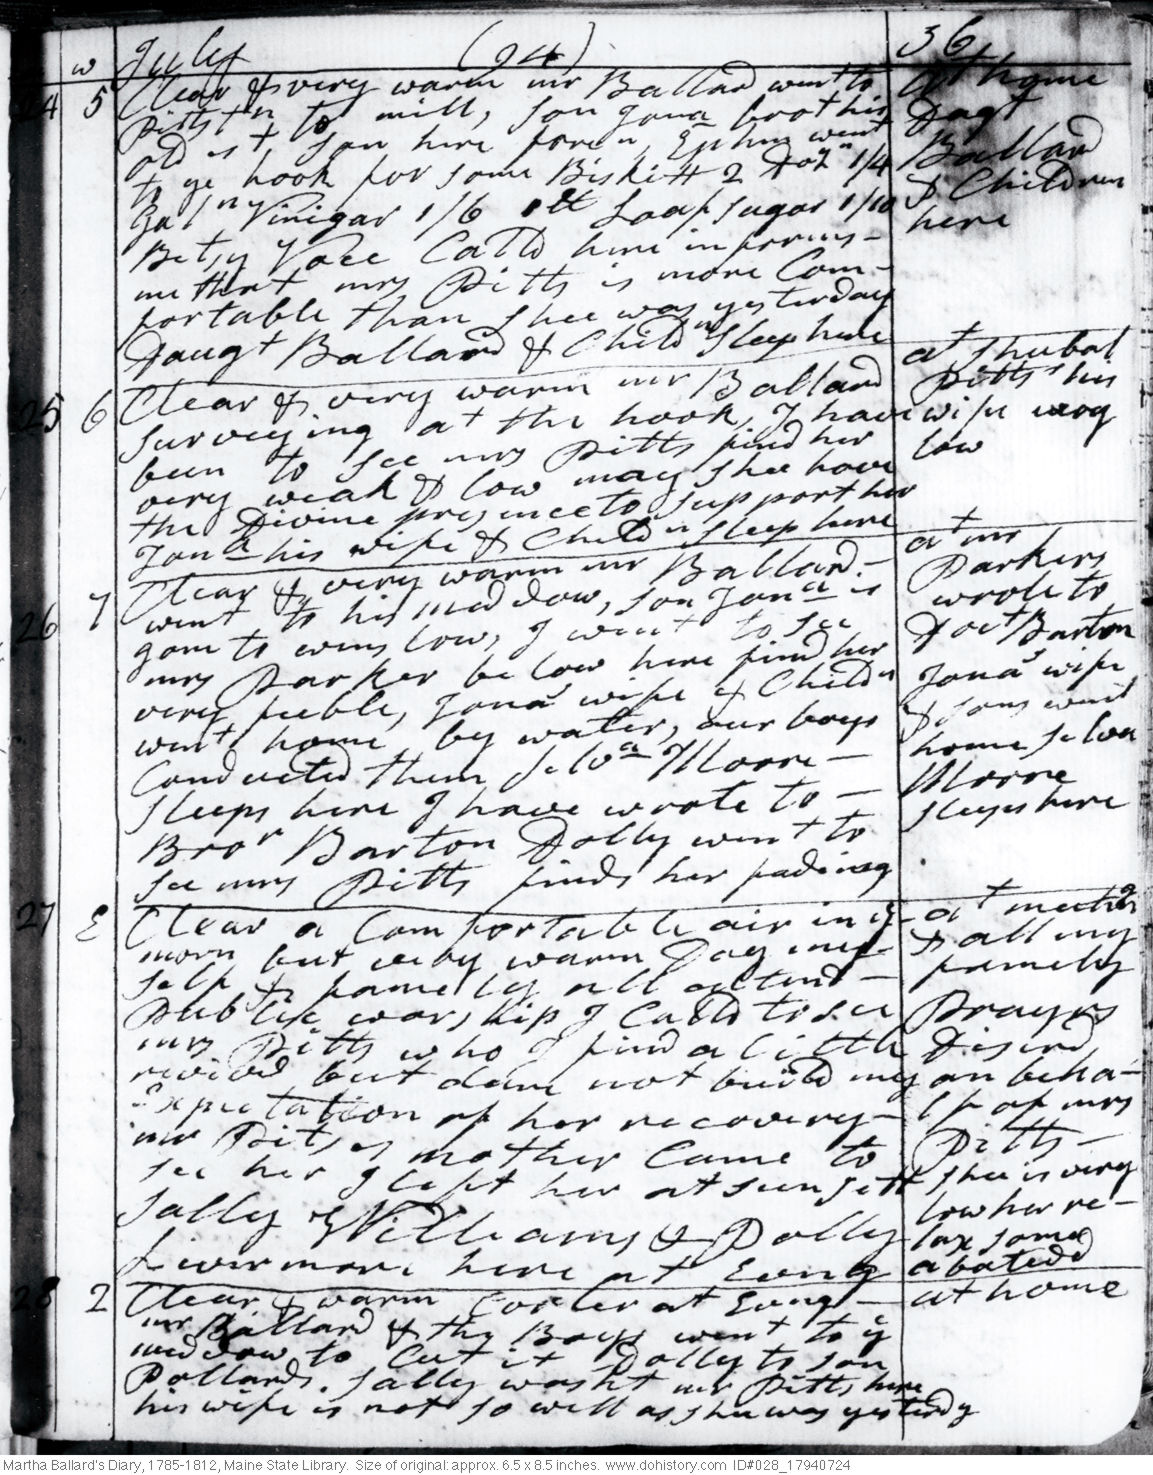 w July (94) 36
24 5 Clear & very warm mr Ballard went to
Pittstn to mill, son Jona brot his
old ist son here foren Ephm went
to ye hook for some Biskitt 2 Dozn 1/4
Galn Vinigar 1/6 1 lb Loaf sugar 1/10
Betsy Vose Calld here informs
me that mrs Pitts is more Com-
fortable than shee was yesterday
Daugt Ballard & Childn Sleep here
at home
Dagt
Ballard
& Children
here
25 6 Clear & very warm mr Ballard
Surveying at the hook, I have
been to see mrs Pitts find her
very weak & low may shee have
the Divine presence to support her
Jona his wife & Childn sleep here
at Shubal
Pitts's his
wife very
low
26 7 Clear & very warm mr Ballard -
went to his meddow, son Jona is
gone to winslow, I went to see
mrs Parker below here find her
very feeble, Jonas wife & Childn
went home by water, our boys
Conducted them Selva Moore -
sleeps here I have wrote to -
Bror Barton Dolly went to
see mrs Pitts finds her fading
at mr
Parkers
wrote to
Doct Barton
Jonas wife
& sons went
home Selva
Moore
sleeps here
27 E Clear a Comfortable air in ye
morn but very warm Day my-
self & famely all attend -
Publik worship I Calld to see
mrs Pitts who I find a little
revivd but dare not build my
Expectation of her recovery -
mr Pits,es mother Came to
see her I left her at sun sett
Sally Williams & Dolly
Livermore here at Evng
at meeting
& all my
famely
Prayrs
Disird
on beha-
lf of mrs
Pitts -
shee is very
low her re-
lax some
abatedd
28 2 Clear & warm Cooler at Evng -
mr Ballard & the Boys went to ye
meddow to Cut it Dolly to son
Pollards. Sally washt mr Pitts here
his wife is not so well as shee was yesterdy
at home
Martha Ballard's Diary, 1785-1812, Maine State Library. Size of original: approx. 6.5 x 8.5 inches. www.dohistory.com ID#028_17940724